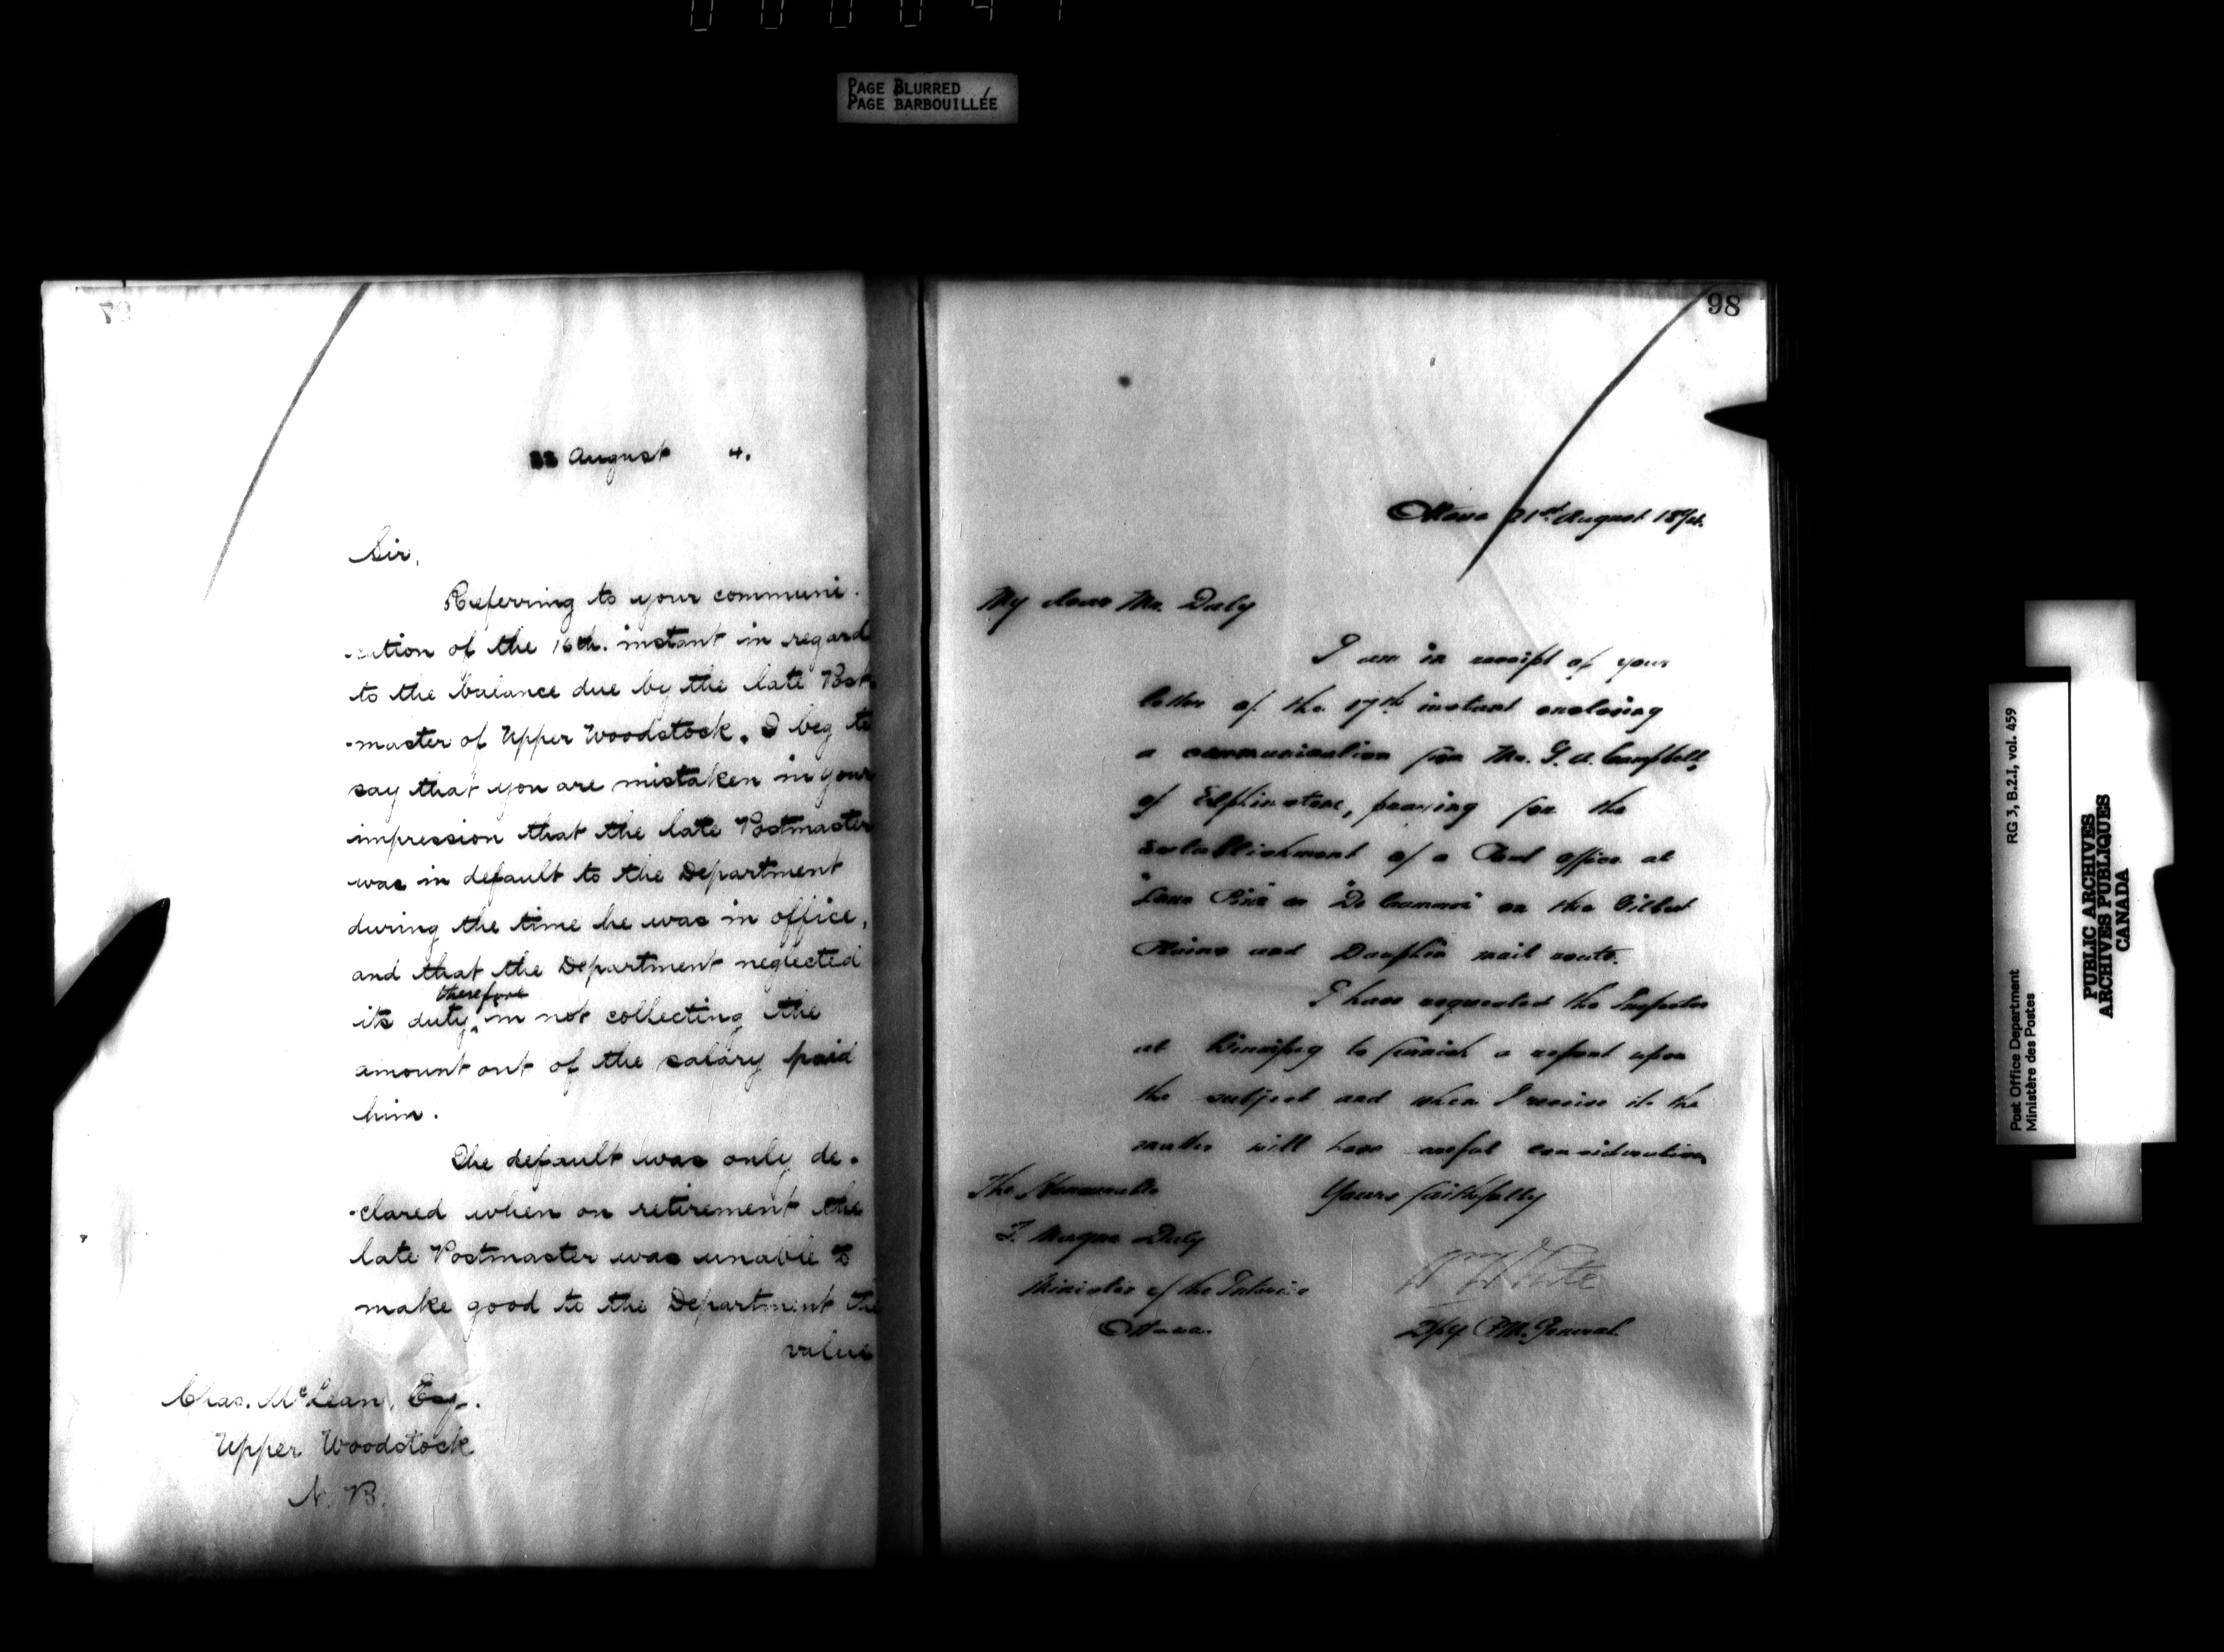 PAGE BLURRED
PAGE BARBOUILLÉE
August 4.
Sir,
Referring to your communi-
-cation of the 16th. instant in regard
to the balance due by the late Post-
-master of Upper Woodstock. I beg to
say that you are mistaken in your
impression that the late Postmaster
was in default to the Department
during the time he was in office,
and that the Department neglected
therefore
its duty in not collecting the
amount out of the salary paid
him.
The default was only de-
-clared when on retirement the
late Postmaster was unable to
make good to the Department the
value
Chas. McLean, Esq.
Upper Woodstock
N. B.
98
Ottawa 21st. August 18
My dear Mr. Daly
I am in receipt of your
letter of the 17th instant enclosing
a communication from Mr. G. A. Campbell,
of Elphinstone, praying for the
establishment of a Post office at
"Lone Pine" or on the Gilbert
Plains and Dauphin mail route.
I have requested the Inspector
at Winnipeg to furnish a report upon
the subject and when I receive it the
matter will have careful consideration
Yours faithfully
The Honourable
T. Mayne Daly
Minister of the Interior
Ottawa.
Wm White
Dpy P.M. General
Post Office Department RG 3, B.2.I, vol. 459
Ministère des Postes
PUBLIC ARCHIVES
ARCHIVES PUBLIQUES
CANADA